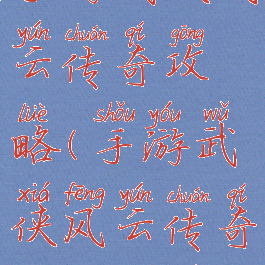 yún chuán qí gōng
云传奇攻
lüè shǒu yóu wǔ
略(手游武
xiá fēng yún chuán qí
侠风云传奇